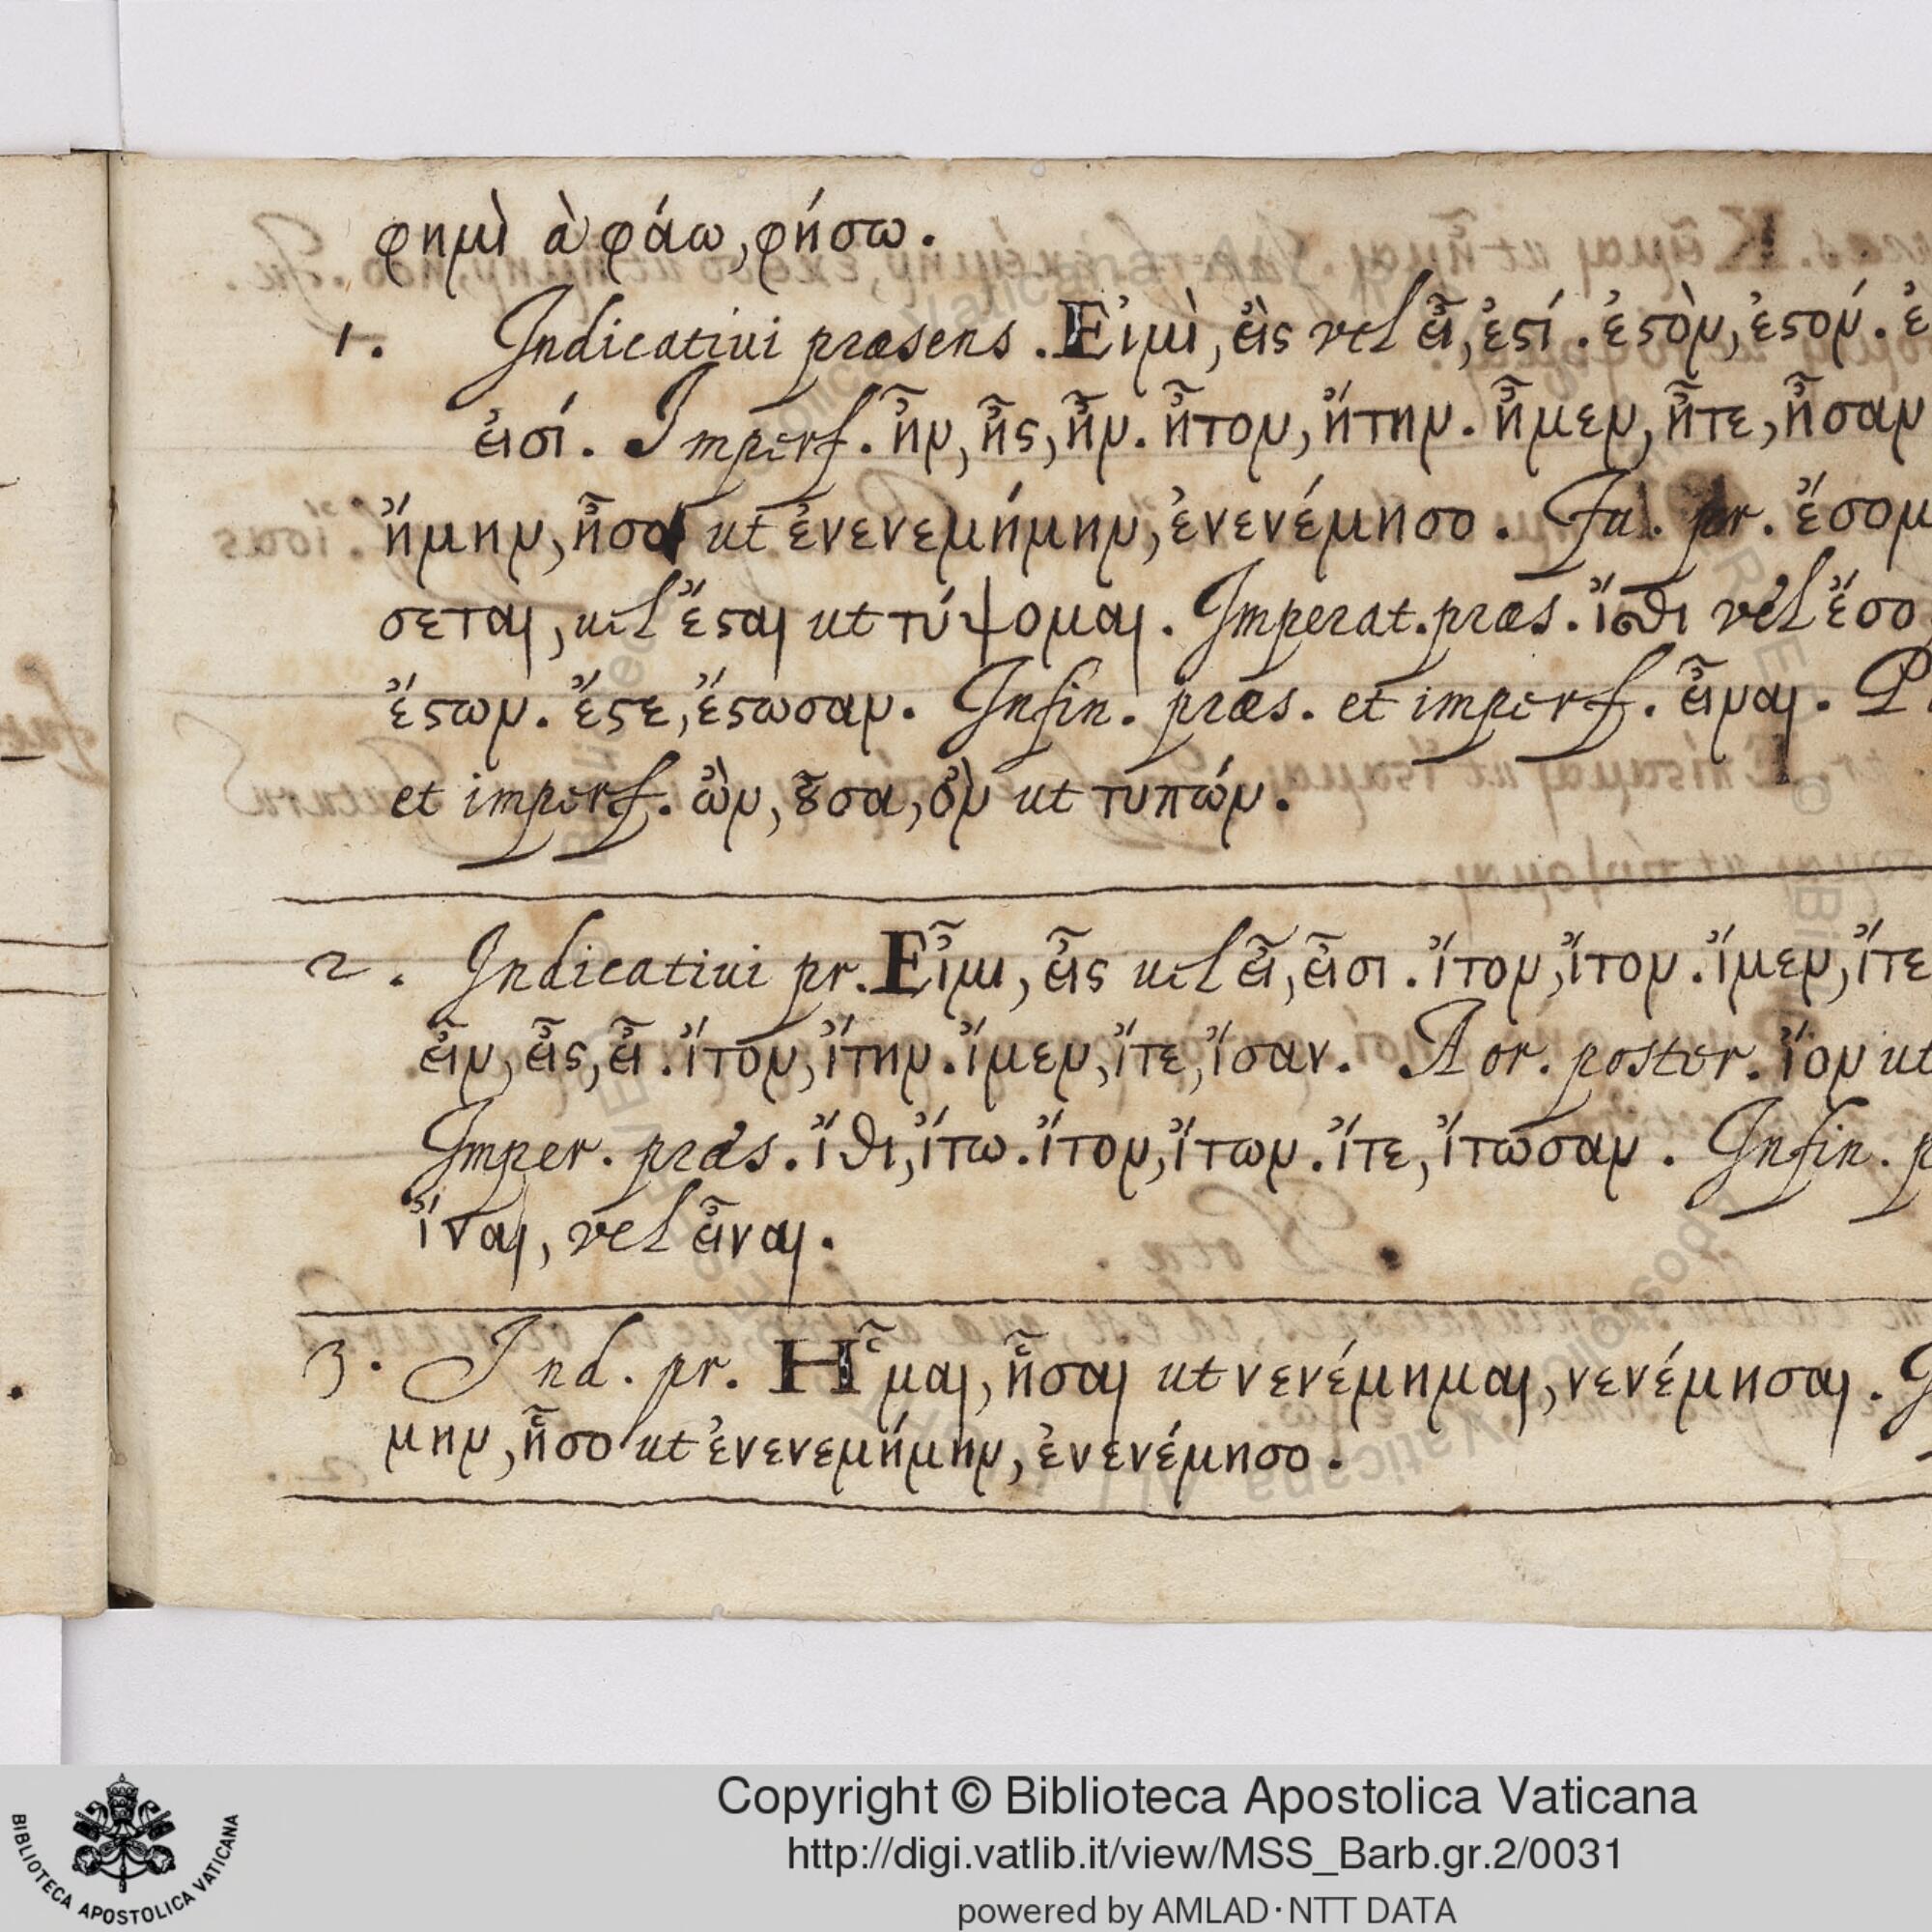 φημὶ à φάω, φήσω.
1. Indicatiui præsens. Εἰμὶ, εἲς vel εἶ, ἐϛί. ἐϛὸν, ἐϛόν.
εἰσί. Imperf. ἦν, ἦς, ἦν. ἦτον, ἤτην. ἦμεν, ἦτε, ἦσαν
ἤμην, ἦσο ut ἐνενεμήμην, ἐνενέμησο. Fu. pr. ἔσομ
σεται, uel ἔϛαι ut τύψομαι. Imperat. præs. ἴσθι vel ἔσο
ἔϛων. ἔϛε, ἔϛωσαν. Infin. præs. et imperf. εἶναι. P
et imperf. ὢν, ȣ̓͂σα, ὂν ut τυπών.
2. Indicatiui pr. Εἶμι, εἶς uel εἶ, εἶσι. ἴτον, ἴτον. ἴμεν, ἴτε
εἶν, εἶς, εἶ. ἴτον, ἴτην. ἴμεν, ἴτε, ἴσαν. Aor. poster. ἴον ut
Imper. præs. ἴθι, ἴτω. ἴτον, ἴτων. ἴτε, ἴτωσαν. Infin. p
ἴναι, vel εἶναι.
3. Ind. pr. Η῟μαι, ἧσαι ut νενέμημαι, νενέμησαι.
μην, ἧσο ut ἐνενεμήμην, ἐνενέμησο.
BIBLIOTECA APOSTOLICA VATICANA
Copyright © Biblioteca Apostolica Vaticana
http://digi.vatlib.it/view/MSS_Barb.gr.2/0031
powered by AMLAD·NTT DATA